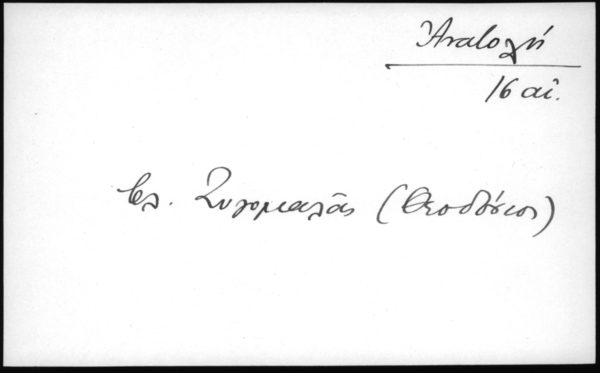 Ἀνατολή
16 αἰ.
βλ. Ζυγομαλᾶς (Θεοδόσιος)